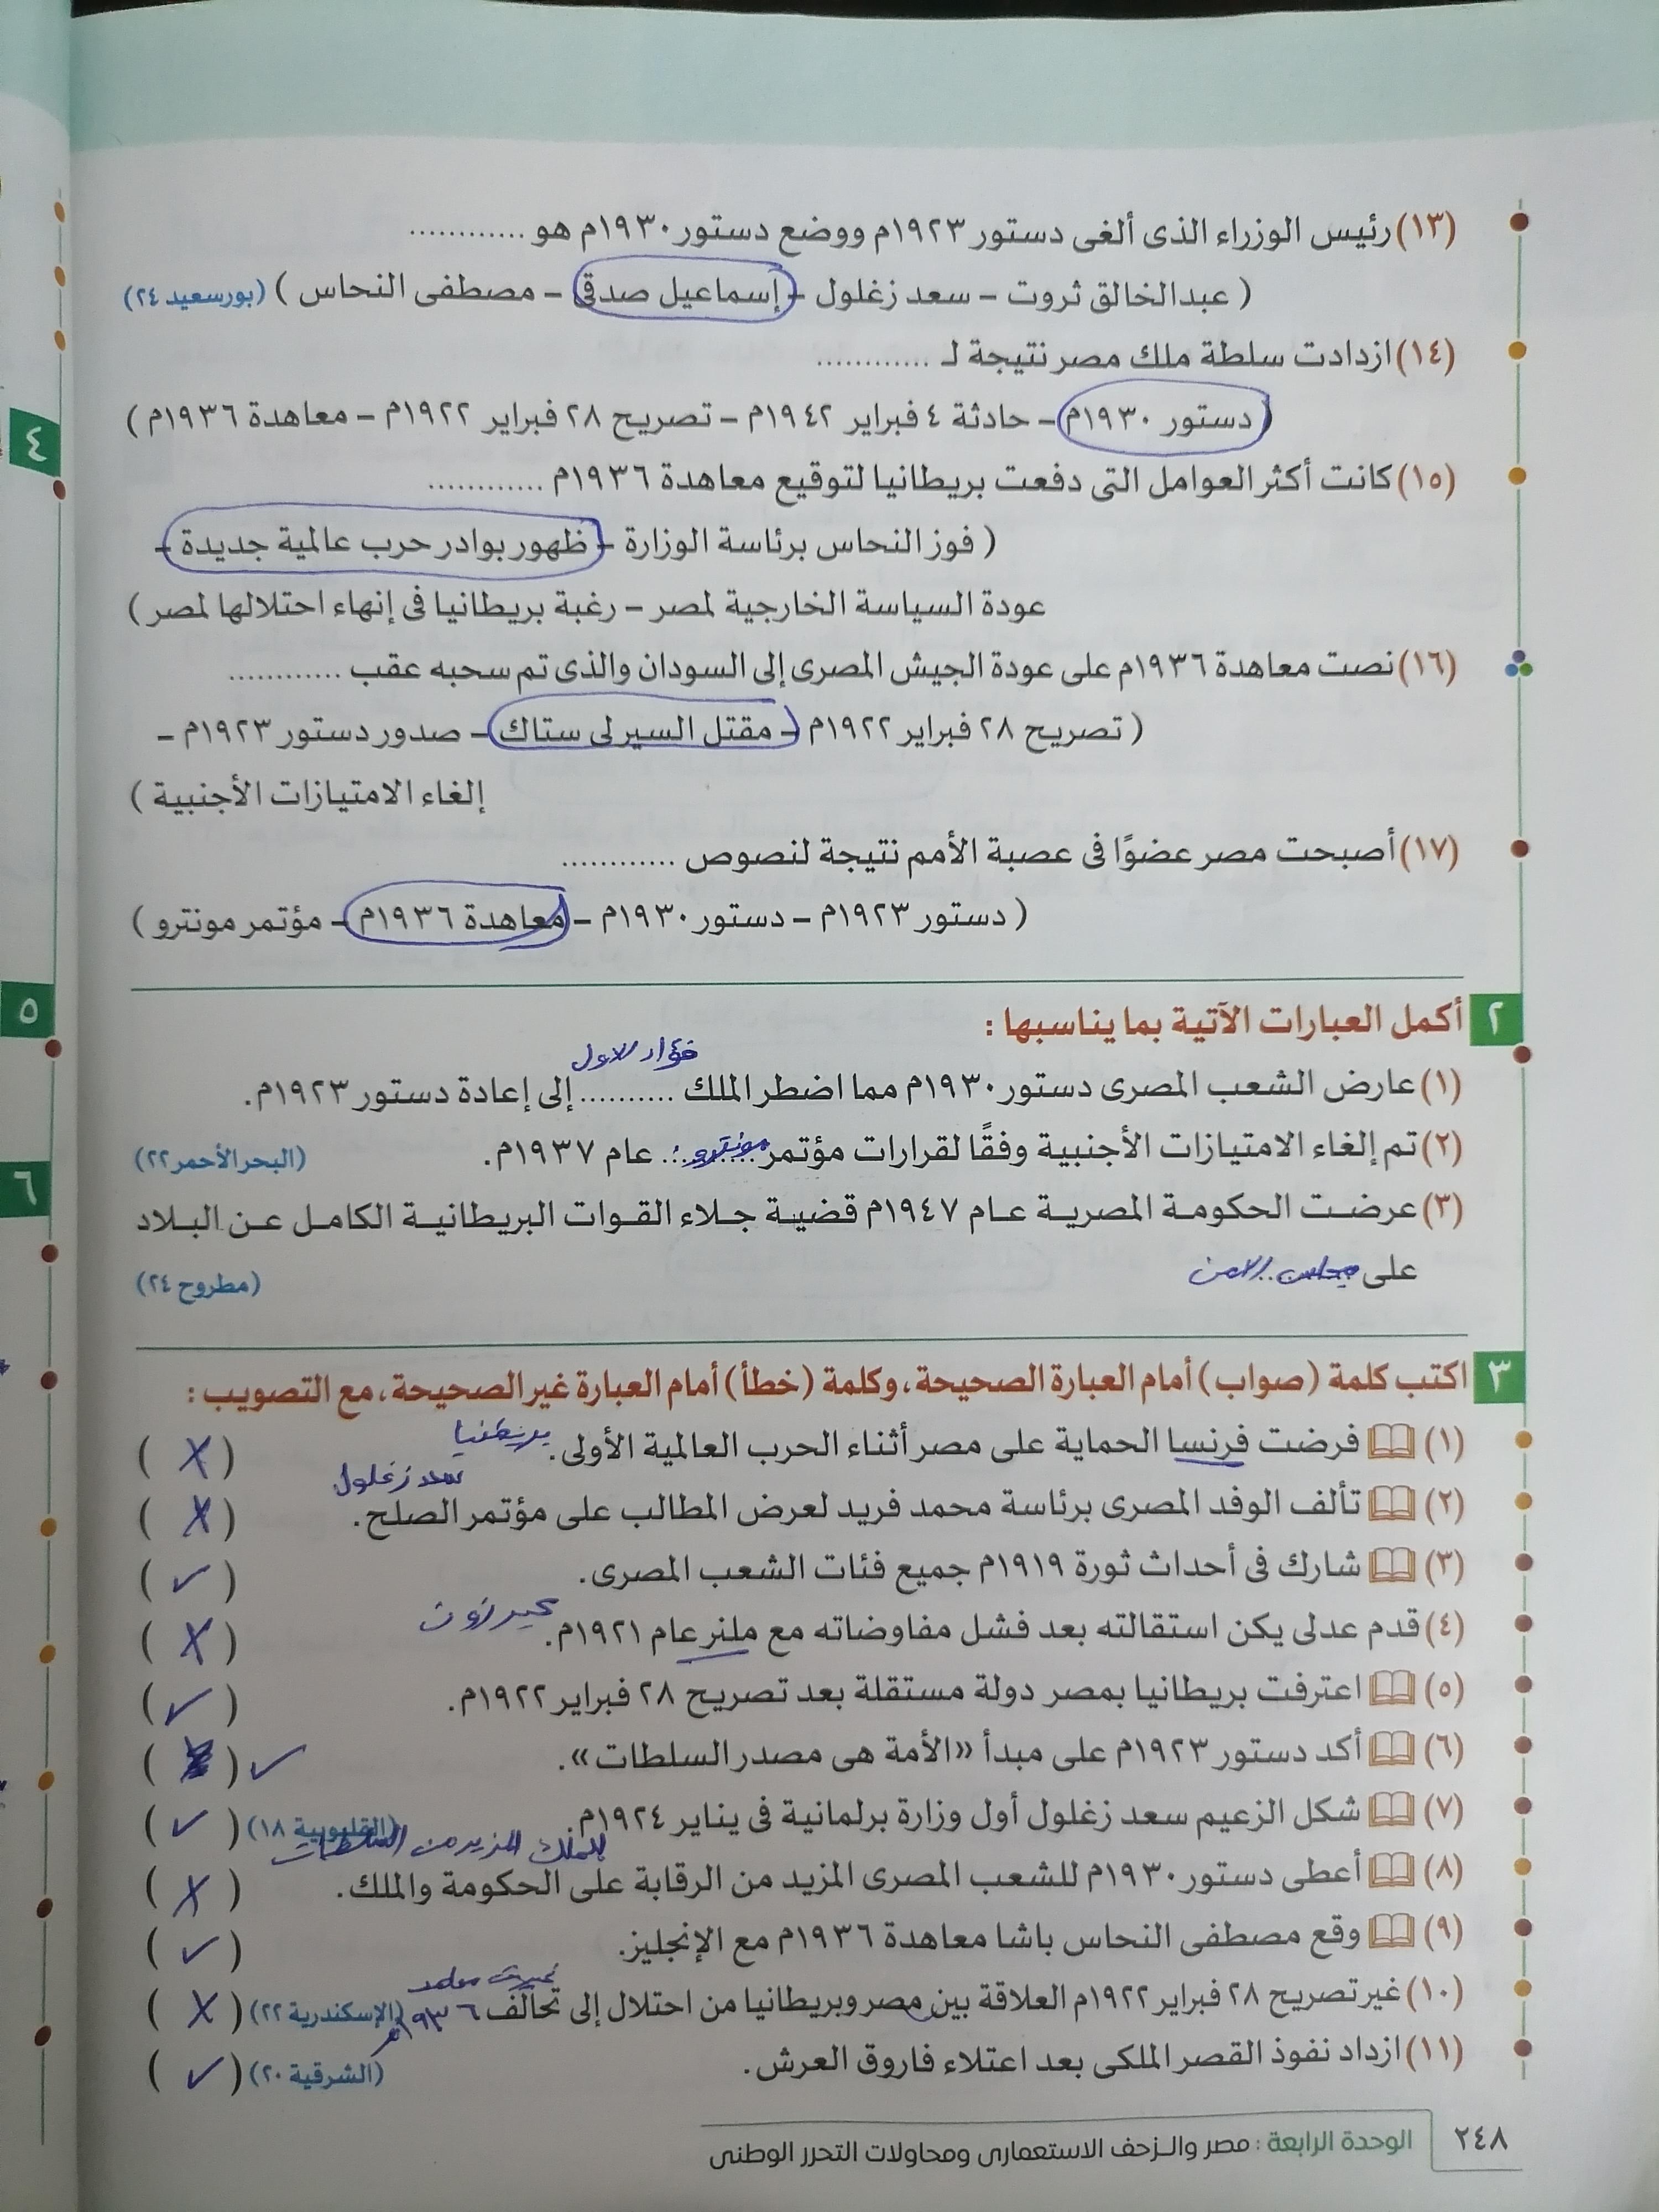 (١٣) رئيس الوزراء الذى ألغى دستور ١٩٢٣م ووضع دستور ١٩٣٠م هو ............
( عبدالخالق ثروت – سعد زغلول – إسماعيل صدقى – مصطفى النحاس ) (بورسعيد ٢٤)
(١٤) ازدادت سلطة ملك مصر نتيجة لـ ............
( دستور ١٩٣٠م – حادثة ٤ فبراير ١٩٤٢م – تصريح ٢٨ فبراير ١٩٢٢م – معاهدة ١٩٣٦م )
(١٥) كانت أكثر العوامل التى دفعت بريطانيا لتوقيع معاهدة ١٩٣٦م ............
( فوز النحاس برئاسة الوزارة – ظهور بوادر حرب عالمية جديدة –
عودة السياسة الخارجية لمصر – رغبة بريطانيا فى إنهاء احتلالها لمصر )
(١٦) نصت معاهدة ١٩٣٦م على عودة الجيش المصرى إلى السودان والذى تم سحبه عقب ............
( تصريح ٢٨ فبراير ١٩٢٢م – مقتل السير لى ستاك – صدور دستور ١٩٢٣م –
إلغاء الامتيازات الأجنبية )
(١٧) أصبحت مصر عضوًا فى عصبة الأمم نتيجة لنصوص ............
( دستور ١٩٢٣م – دستور ١٩٣٠م – معاهدة ١٩٣٦م – مؤتمر مونترو )
٢ أكمل العبارات الآتية بما يناسبها :
فؤاد الاول
(١) عارض الشعب المصرى دستور ١٩٣٠م مما اضطر الملك .......... إلى إعادة دستور ١٩٢٣م.
(٢) تم إلغاء الامتيازات الأجنبية وفقًا لقرارات مؤتمر مونترو عام ١٩٣٧م. (البحر الأحمر ٢٢)
(٣) عرضت الحكومة المصرية عام ١٩٤٧م قضية جلاء القوات البريطانية الكامل عن البلاد
على مجلس الامن (مطروح ٢٤)
٣ اكتب كلمة (صواب) أمام العبارة الصحيحة، وكلمة (خطأ) أمام العبارة غير الصحيحة، مع التصويب :
بريطنيا
(١) فرضت فرنسا الحماية على مصر أثناء الحرب العالمية الأولى. ( X )
سعد زغلول
(٢) تألف الوفد المصرى برئاسة محمد فريد لعرض المطالب على مؤتمر الصلح. ( X )
(٣) شارك فى أحداث ثورة ١٩١٩م جميع فئات الشعب المصرى. ( ✓ )
(٤) قدم عدلى يكن استقالته بعد فشل مفاوضاته مع ملنر عام ١٩٢١م. ( X )
(٥) اعترفت بريطانيا بمصر دولة مستقلة بعد تصريح ٢٨ فبراير ١٩٢٢م. ( ✓ )
(٦) أكد دستور ١٩٢٣م على مبدأ «الأمة هى مصدر السلطات». ✓ ( )
(٧) شكل الزعيم سعد زغلول أول وزارة برلمانية فى يناير ١٩٢٤م. (القليوبية ١٨) ( ✓ )
للملك المزيد من السلطات
(٨) أعطى دستور ١٩٣٠م للشعب المصرى المزيد من الرقابة على الحكومة والملك. ( X )
(٩) وقع مصطفى النحاس باشا معاهدة ١٩٣٦م مع الإنجليز. ( ✓ )
(١٠) غير تصريح ٢٨ فبراير ١٩٢٢م العلاقة بين مصر وبريطانيا من احتلال إلى تحالف ١٩٣٦م (الإسكندرية ٢٢) ( X )
(١١) ازداد نفوذ القصر الملكى بعد اعتلاء فاروق العرش. (الشرقية ٢٠) ( ✓ )
٢٤٨ الوحدة الرابعة : مصر والزحف الاستعمارى ومحاولات التحرر الوطنى
٤
٥
٦